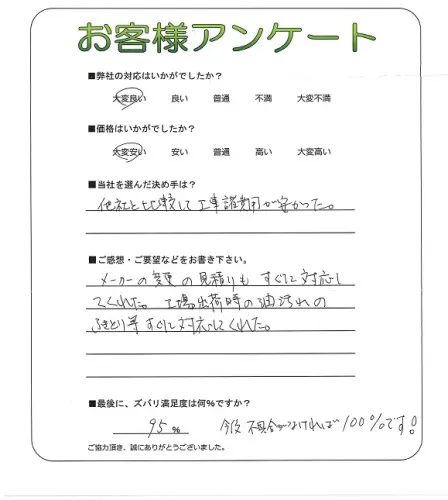 お客様アンケート
■弊社の対応はいかがでしたか？
大変良い 良い 普通 不満 大変不満
■価格はいかがでしたか？
大変安い 安い 普通 高い 大変高い
■当社を選んだ決め手は？
他社と比較して工事諸費用が安かった。
■ご感想・ご要望などをお書き下さい。
メーカーの変更の見積りもすぐに対応し
てくれた。工場出荷時の油汚れの
ふきとり等すぐに対応してくれた。
■最後に、ズバリ満足度は何%ですか？
95 % 今後不具合がなければ100%です!
ご協力頂き、誠にありがとうございました。